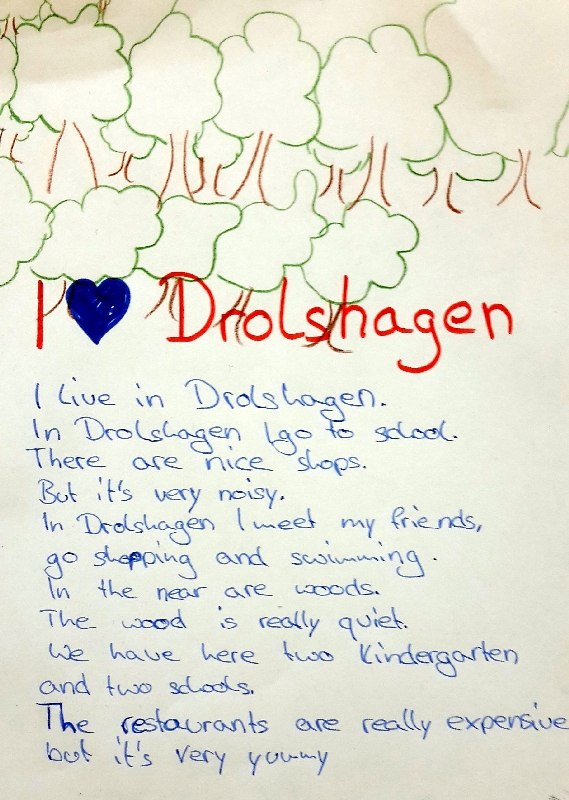 I ♥ Drolshagen
I live in Drolshagen.
In Drolshagen I go to school.
There are nice shops.
But it's very noisy.
In Drolshagen I meet my friends,
go shopping and swimming.
In the near are woods.
The wood is really quiet.
We have here two Kindergarten
and two schools.
The restaurants are really expensive
but it's very yummy